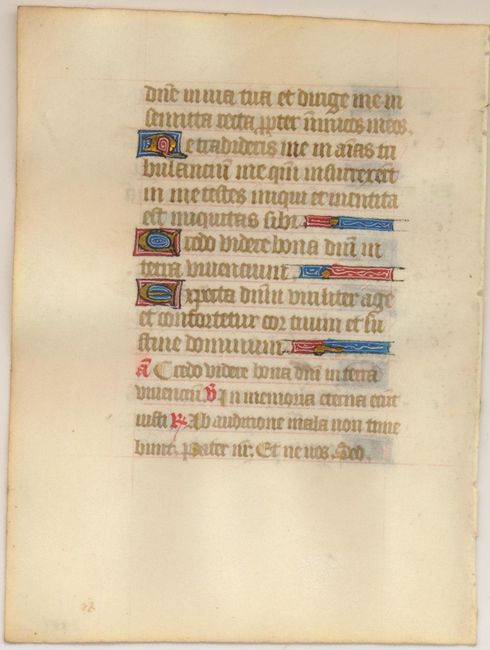 dñe in uia tua et dirige me in
semita recta ꝓpter inimicos meos.
Ne tradideris me in aīas tri
bulanciū me qm̄ insurrexert̄
in me testes iniqui et mentita
est iniquitas sibi
Credo videre bona dñi in
terra viuencium.
Expecta dñm viriliter age
et confortetur cor tuum et su
stine dominum.
a᷈ Credo videre bona dñi in terra
viuenciū ℣ In memoria eterna erūt
iusti ℟ Ab auditione mala non time
bunt. Pater nr̄. Et ne nos. Sed